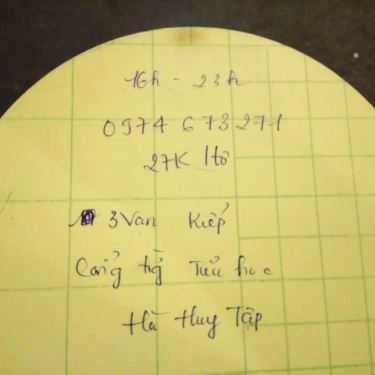 16h - 23h
0974 673 271
27K 1tô
3 Vạn Kiếp
Cổng trg Tiểu học
Hà Huy Tập